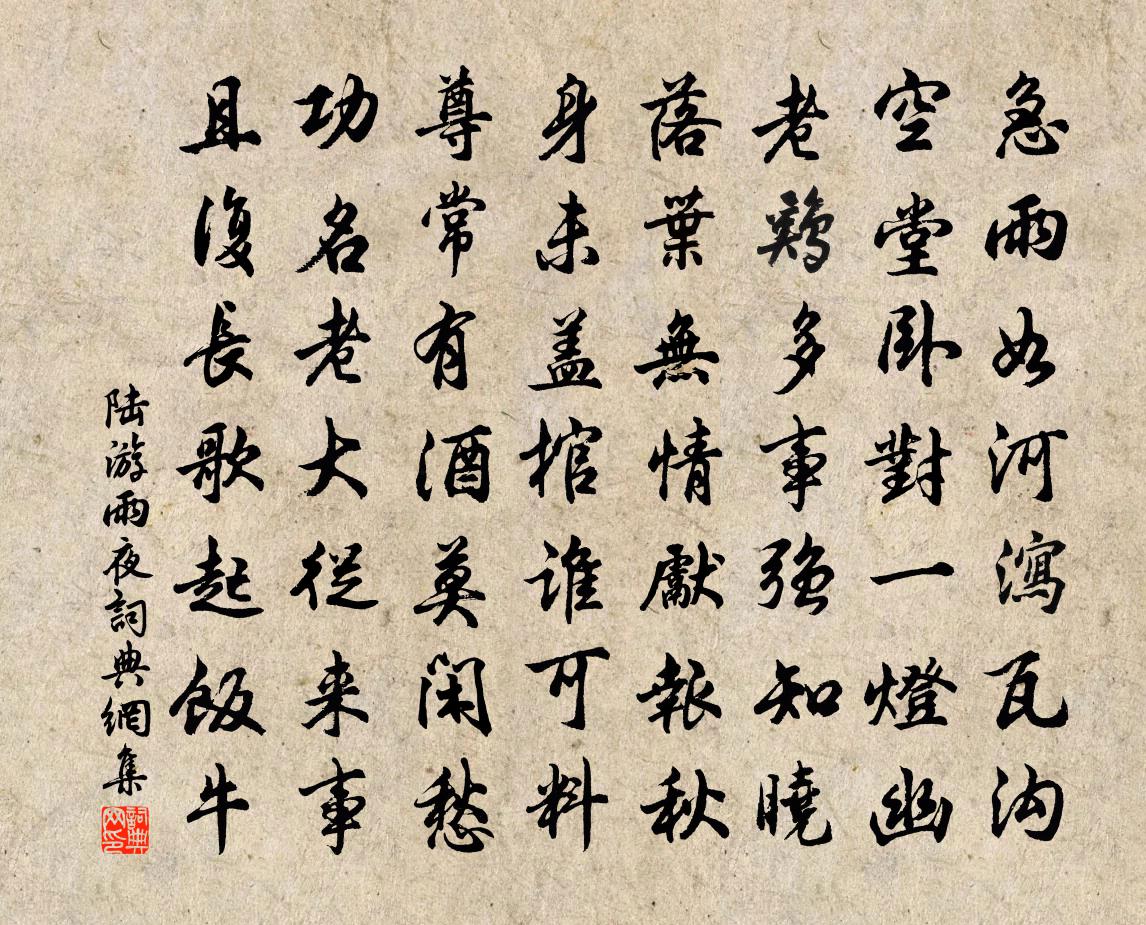 急雨如河瀉瓦沟
空堂卧對一燈幽
老鷄多事强知曉
落葉無情獻報秋
身未盖棺谁可料
尊常有酒莫闲愁
功名老大從来事
且復長歌起飯牛
陆游雨夜詞典網集
詞典网印